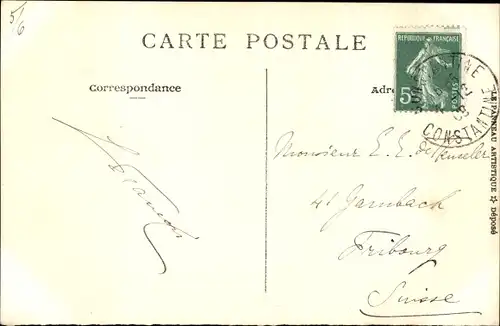 5/6
CARTE POSTALE
Correspondance
REPUBLIQUE FRANÇAISE
5
CONSTANTINE
CONSTANTINE
LE PANNEAU ARTISTIQUE ✡ Déposé
Monsieur E. E. de
41 Gambach
Fribourg
Suisse